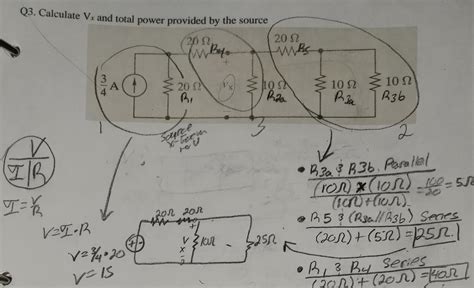 Q3. Calculate Vx and total power provided by the source
20 Ω
R4
20 Ω
R5
3/4 A
20 Ω
R1
+
Vx
-
10 Ω
R2a
10 Ω
R3a
10 Ω
R3b
1
3
2
Source
V
I | R
I = V/R
V=I·R
V=3/4·20
V=15
20Ω
20Ω
+
V
x
-
10Ω
25Ω
• R3a & R3b Parallel
(10Ω) x (10Ω) = 100/20 = 5Ω
(10Ω)+(10Ω)
• R5 & (R3a//R3b) Series
(20Ω)+(5Ω)=25Ω
• R1 & R4 Series
(20Ω)+(20Ω)=40Ω